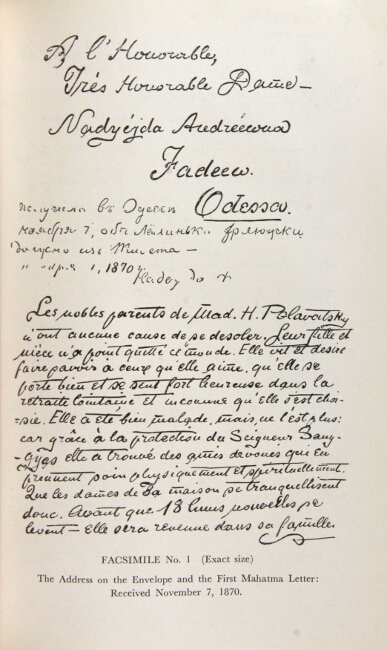 À l'Honorable,
Très Honorable Dame—
Nadyéjda Andréewna
Fadeew.
Odessa.
получила въ Одессѣ
ноября 7, объ Лёлинькѣ
изъ Тибета —
1, 1870
Les nobles parents de Mad. H. Blavatsky
n'ont aucune cause de se desoler. Leur fille et
nièce n'a point quitté ce monde. Elle vit et desire
faire savoir à ceux qu'elle aime, qu'elle se
porte bien et se sent fort heureuse dans la
retraite lointaine et inconnue qu'elle s'est choi-
-sie. Elle a été bien malade, mais ne l'est plus:
car grâce à la protection du Seigneur Sang-
-gyas elle a trouvé des amis devoués qui en
prennent soin physiquement et spirituellement.
Que les dames de sa maison se tranquillisent
donc. Avant que 18 lunes nouvelles se
levent — elle sera revenue dans sa famille.
FACSIMILE No. 1 (Exact size)
The Address on the Envelope and the First Mahatma Letter:
Received November 7, 1870.